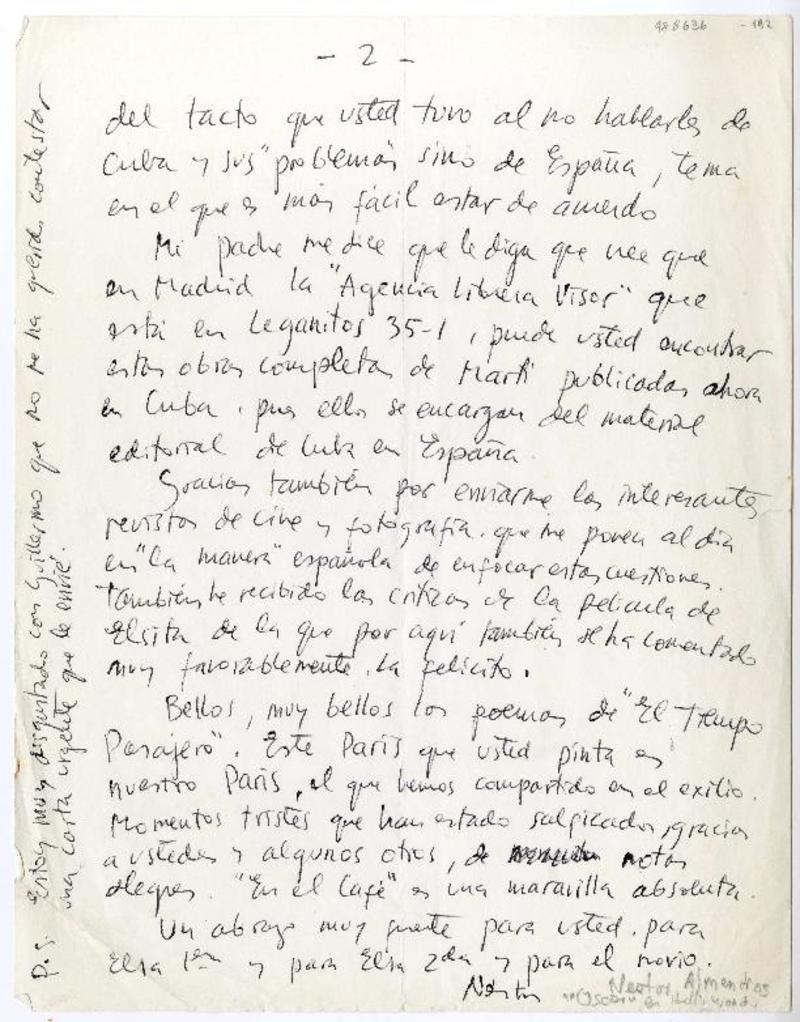 988636 - 192
- 2 -
del tacto que usted tuvo al no hablarles de
Cuba y sus "problemas" sino de España, tema
en el que es más fácil estar de acuerdo
Mi padre me dice que le diga que cree que
en Madrid la "Agencia Librera Visor" que
está en Leganitos 35-1, puede usted encontrar
estas obras completas de Martí publicadas ahora
en Cuba, pues ellos se encargan del material
editorial de Cuba en España.
Gracias también por enviarme las interesantes
revistas de cine y fotografía, que me ponen al día
en "la manera" española de enfocar estas cuestiones.
También he recibido las críticas de la película de
Elsita de la que por aquí también se ha comentado
muy favorablemente, la felicito.
Bellos, muy bellos los poemas de "El Tiempo
Pasajero". Este París que usted pinta es
nuestro París, el que hemos compartido en el exilio.
Momentos tristes que han estado salpicados, gracias
a ustedes y algunos otros, de notas
alegres. "En el Café" es una maravilla absoluta.
Un abrazo muy fuerte para usted, para
Elsa 1era y para Elsa 2da y para el novio.
Nestor
Nestor Almendros
"Oscar" en Hollywood
P.S. Estoy muy disgustado con Guillermo que no me ha querido contestar
una carta urgente que le envié.